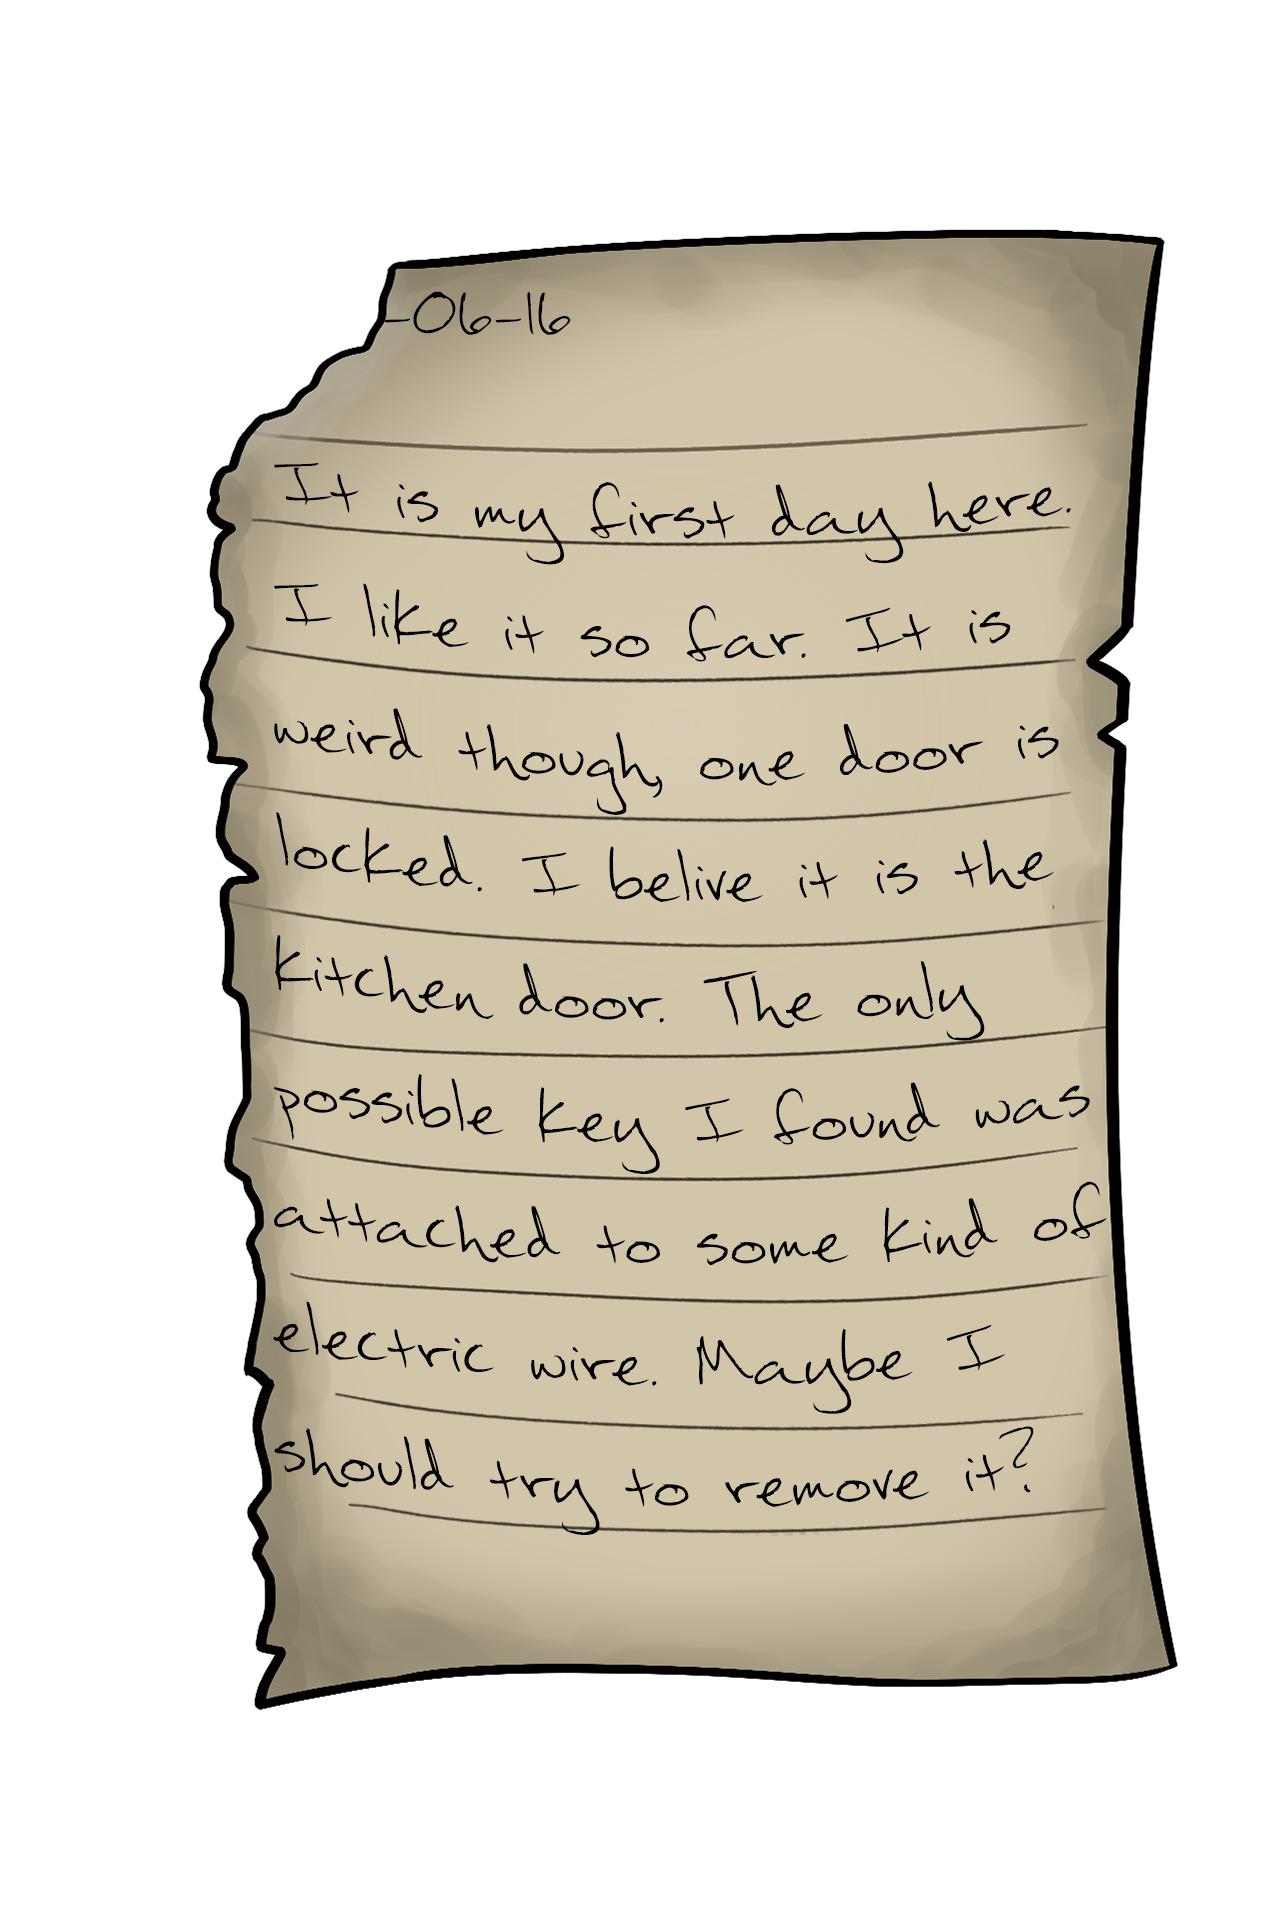 -06-16
It is my first day here.
I like it so far. It is
weird though, one door is
locked. I belive it is the
kitchen door. The only
possible key I found was
attached to some kind of
electric wire. Maybe I
should try to remove it?